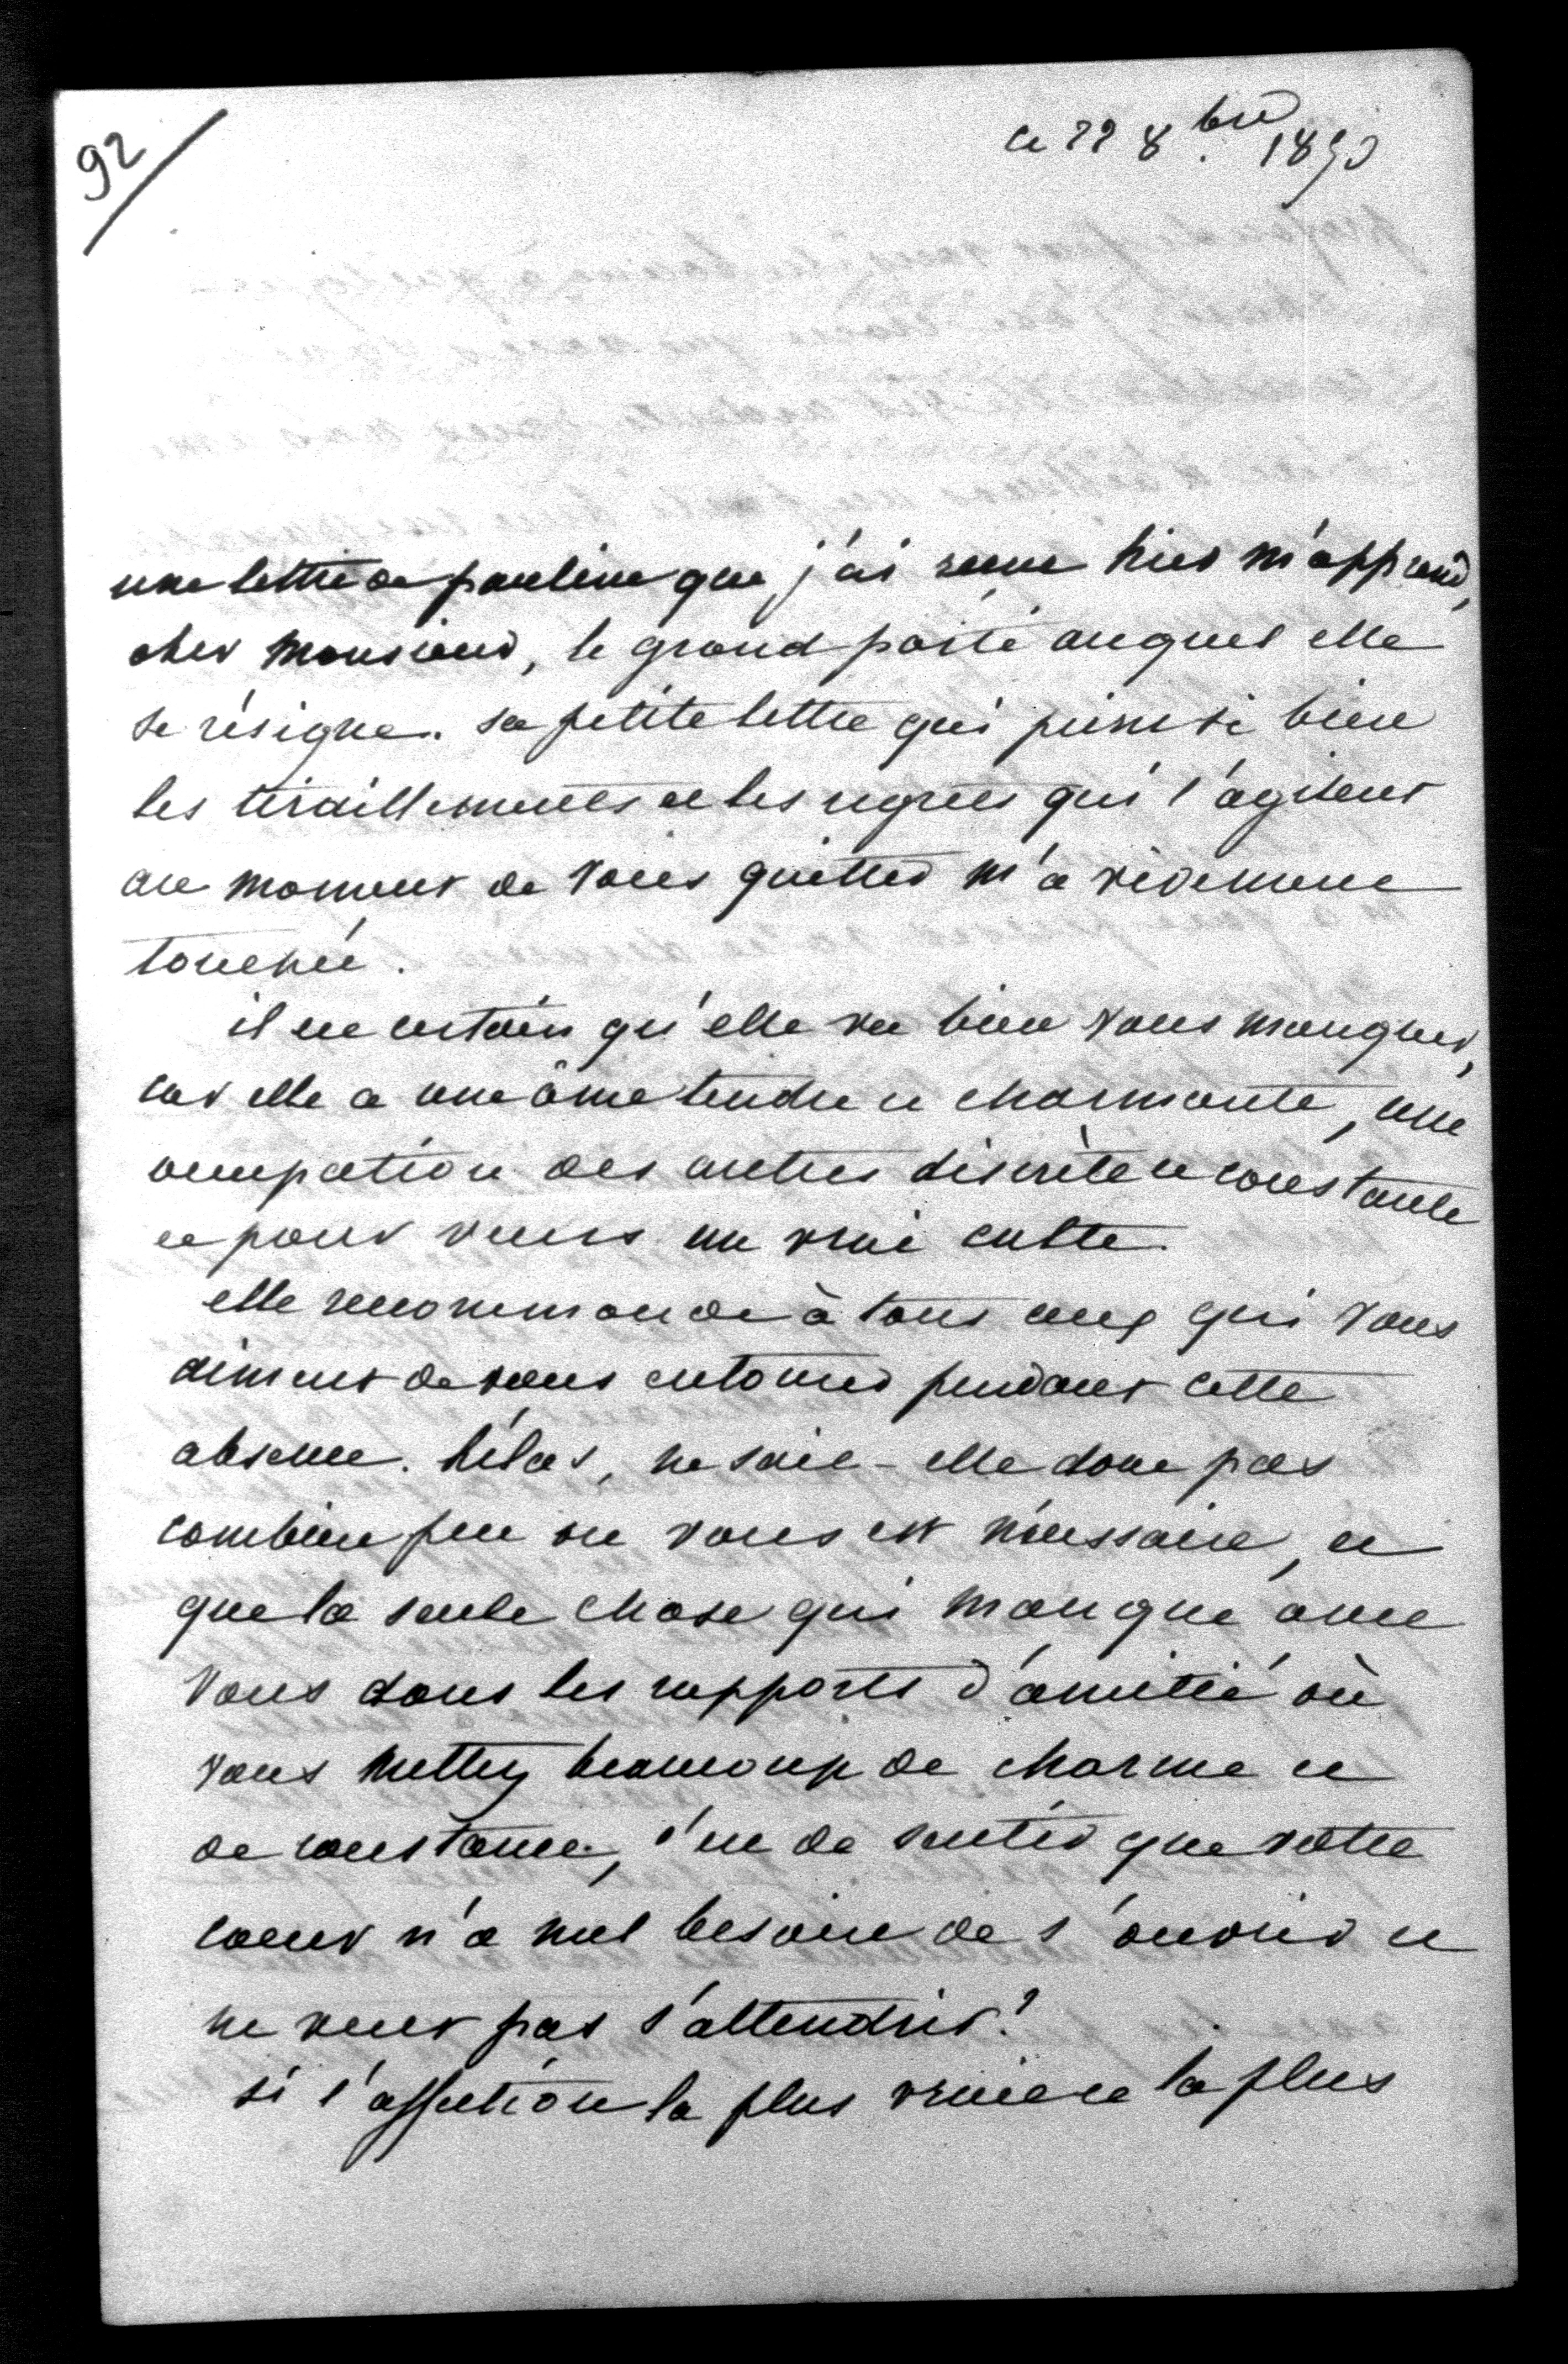 92
ce 22 8.bre 1850
une lettre de pauline que j'ai reçue hier m'apprend,
cher monsieur, le grand parti auquel elle
se résigne. sa petite lettre qui peint si bien
les tiraillements et les regrets qui l'agitent
au moment de vous quitter m'a vivement
touchée.
il est certain qu'elle va bien vous manquer,
car elle a une âme tendre et charmante, une
occupation des autres discrète et constante
et pour vous un vrai culte.
elle recommande à tous ceux qui vous
aiment de vous entourer pendant cette
absence. hélas, ne sait-elle donc pas
combien peu on vous est nécessaire, et
que la seule chose qui manque avec
vous dans les rapports d'amitié où
vous mettez beaucoup de charme et
de constance, c'est de sentir que votre
coeur n'a nul besoin de s'ouvrir et
ne veut pas s'attendrir?
si l'affection la plus vraie et la plus